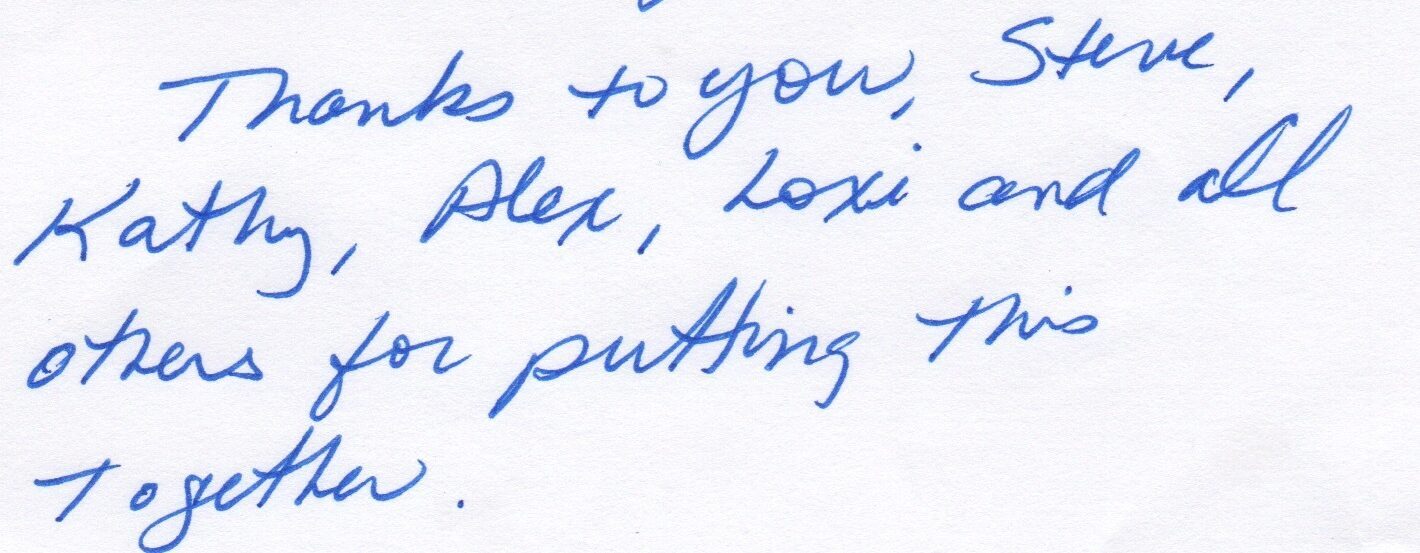 Thanks to you, Steve,
Kathy, Alex, Loxi and all
others for putting this
together.